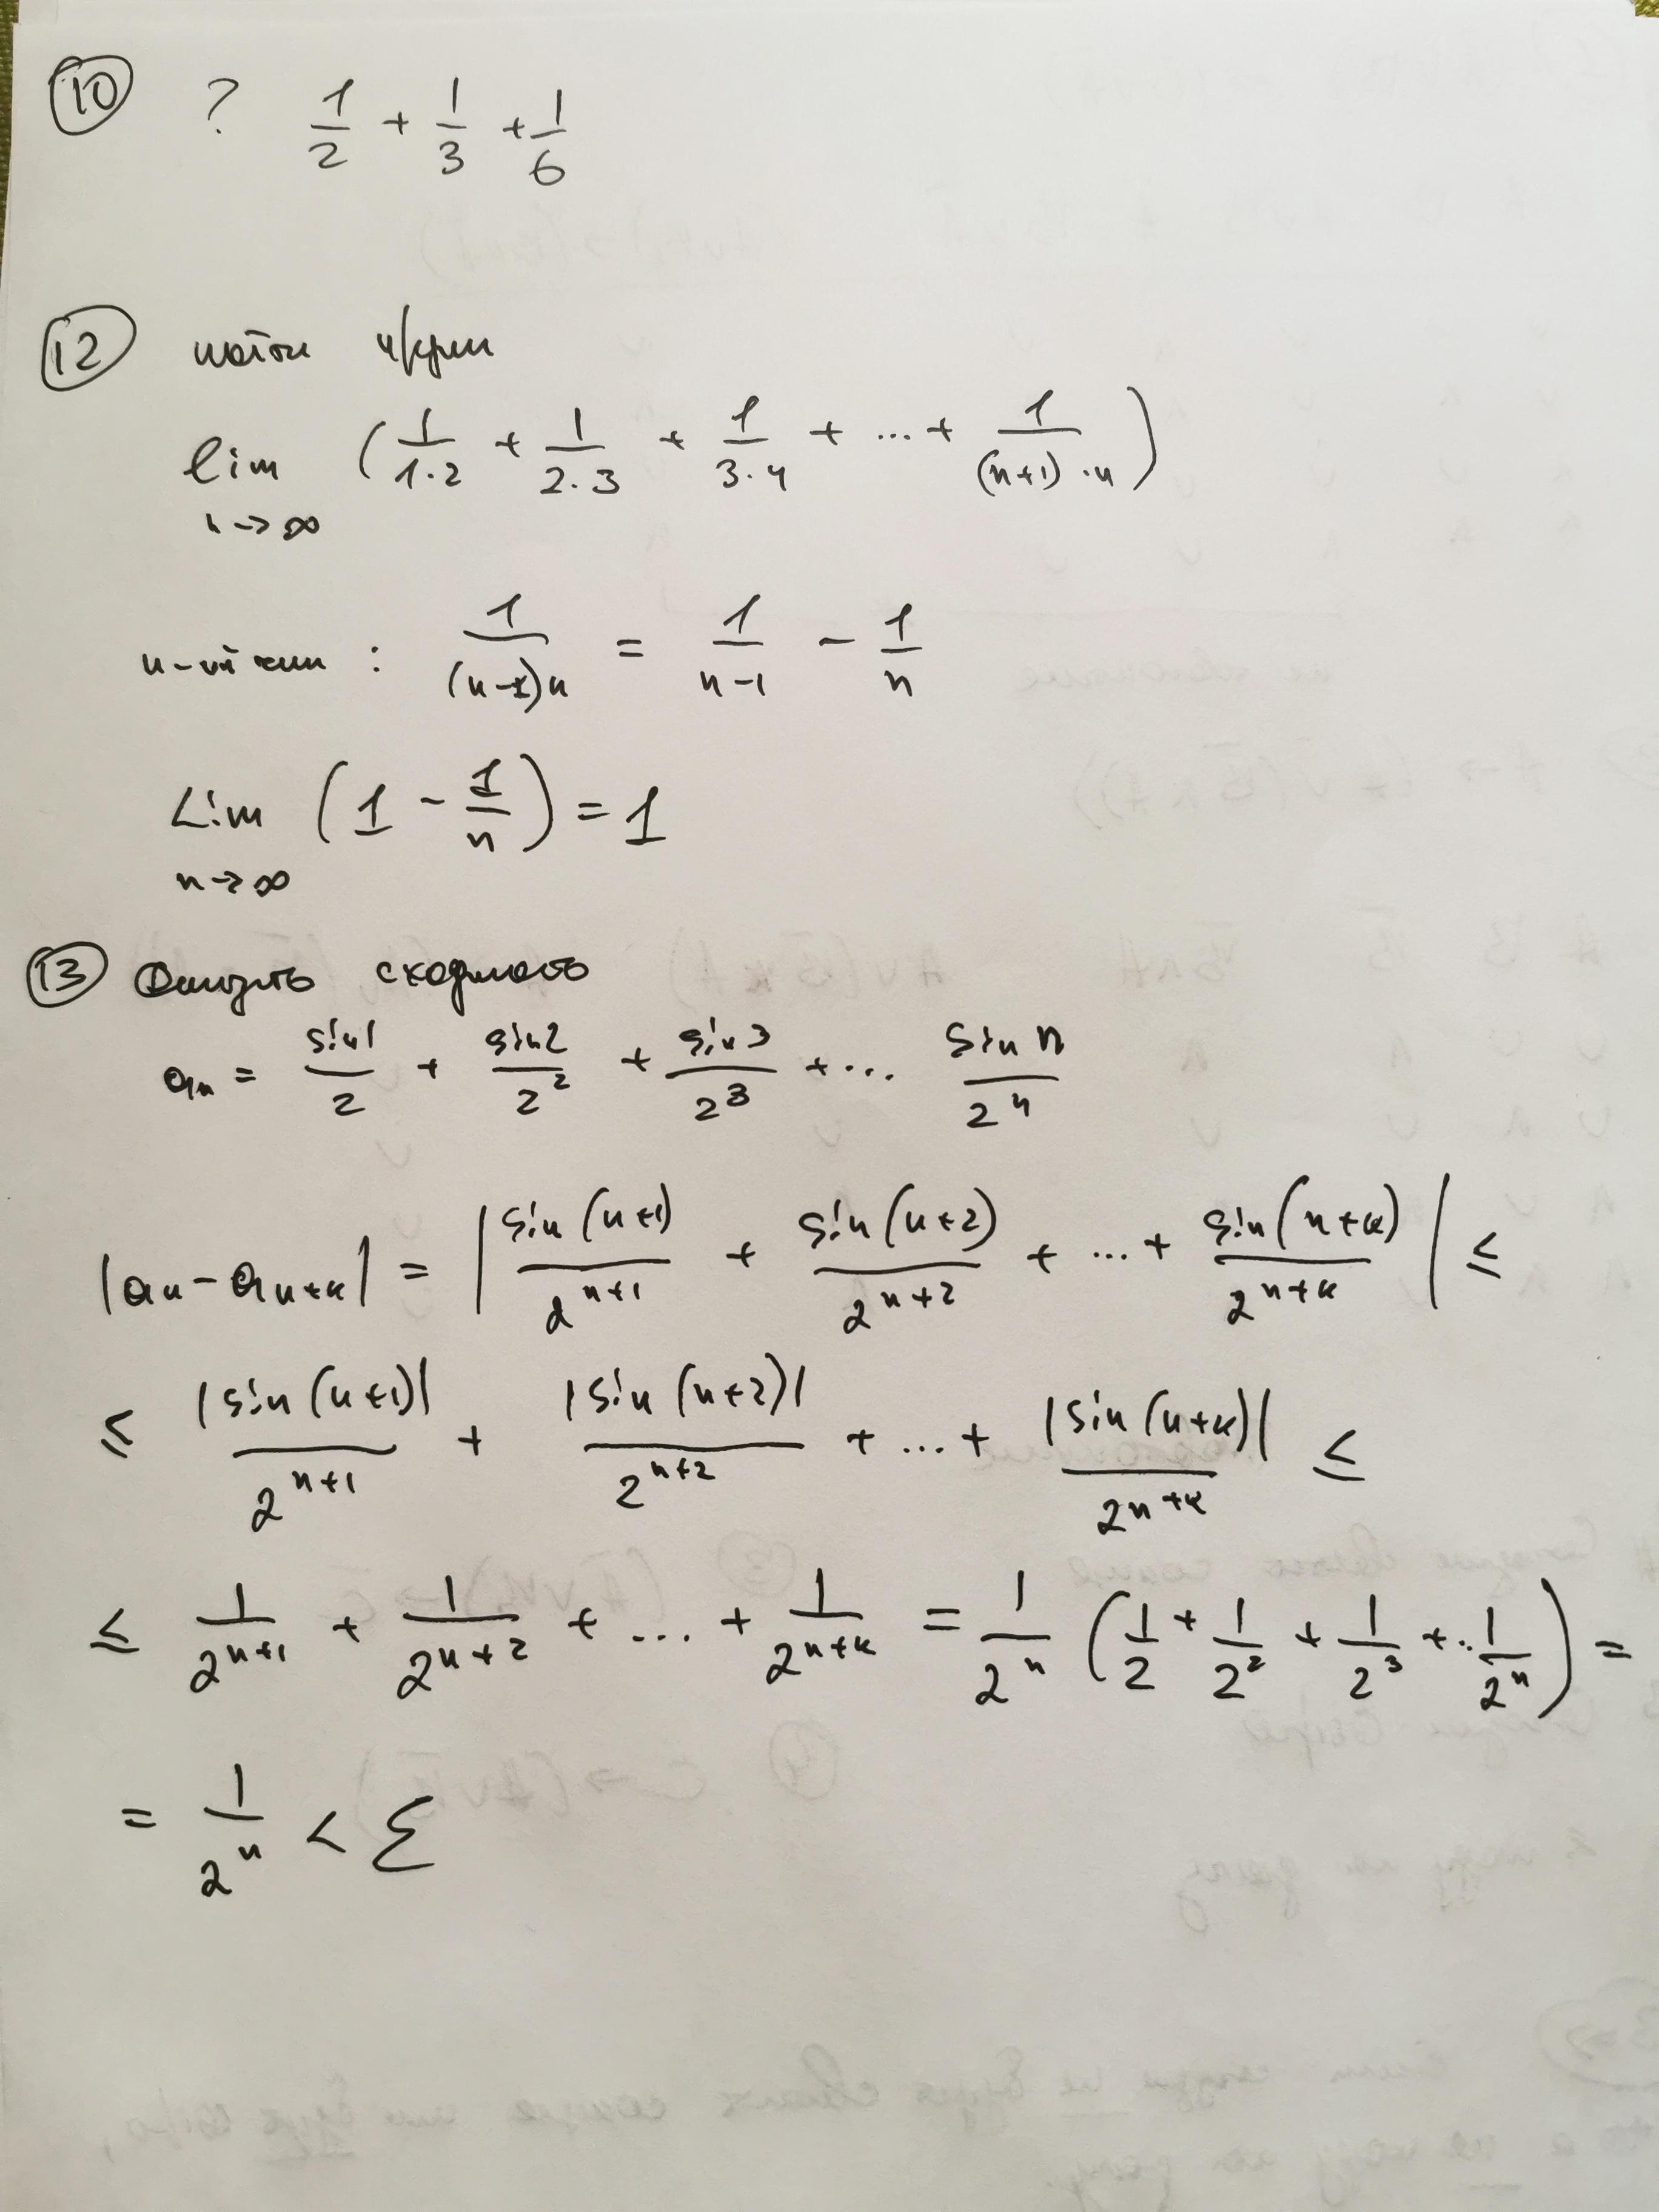 10 ? 1/2 + 1/3 + 1/6
12 найти
lim (1/(1·2) + 1/(2·3) + 1/(3·4) + ... + 1/((n+1)·n))
n→∞
n-ый член : 1/((n-1)n) = 1/(n-1) - 1/n
Lim (1 - 1/n) = 1
n→∞
13 сходимость
aₙ = sin1/2 + sin2/2² + sin3/2³ + ... sin n/2ⁿ
|aₙ - aₙ₊ₖ| = |sin(n+1)/2ⁿ⁺¹ + sin(n+2)/2ⁿ⁺² + ... + sin(n+k)/2ⁿ⁺ᵏ| ≤
≤ |sin(n+1)|/2ⁿ⁺¹ + |sin(n+2)|/2ⁿ⁺² + ... + |sin(n+k)|/2ⁿ⁺ᵏ ≤
≤ 1/2ⁿ⁺¹ + 1/2ⁿ⁺² + ... + 1/2ⁿ⁺ᵏ = 1/2ⁿ (1/2 + 1/2² + 1/2³ + .. 1/2ⁿ) =
= 1/2ⁿ < Σ